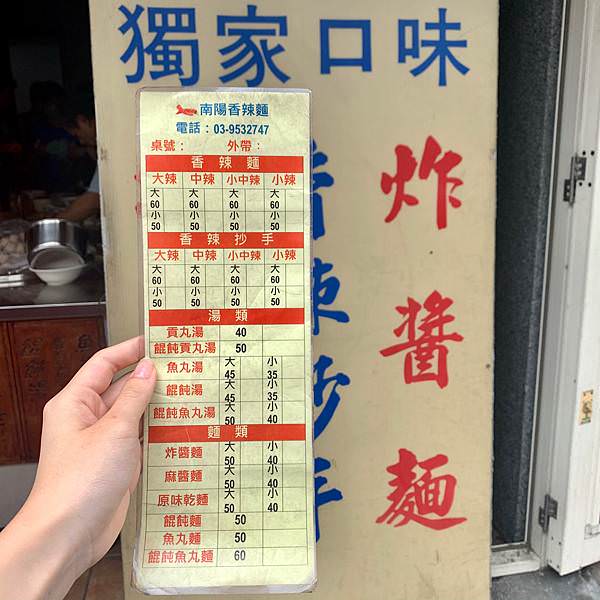 獨家口味
炸醬麵
南陽香辣麵
電話：03-9532747
桌號： 外帶：
香辣麵
大辣 中辣 小中辣 小辣
大60 大60 大60 大60
小50 小50 小50 小50
香辣抄手
大辣 中辣 小中辣 小辣
大60 大60 大60 大60
小50 小50 小50 小50
湯類
貢丸湯 40
餛飩貢丸湯 50
魚丸湯 大45 小35
餛飩湯 大45 小35
餛飩魚丸湯 大50 小40
麵類
炸醬麵 大50 小40
麻醬麵 大50 小40
原味乾麵 大50 小40
餛飩麵 50
魚丸麵 50
餛飩魚丸麵 60